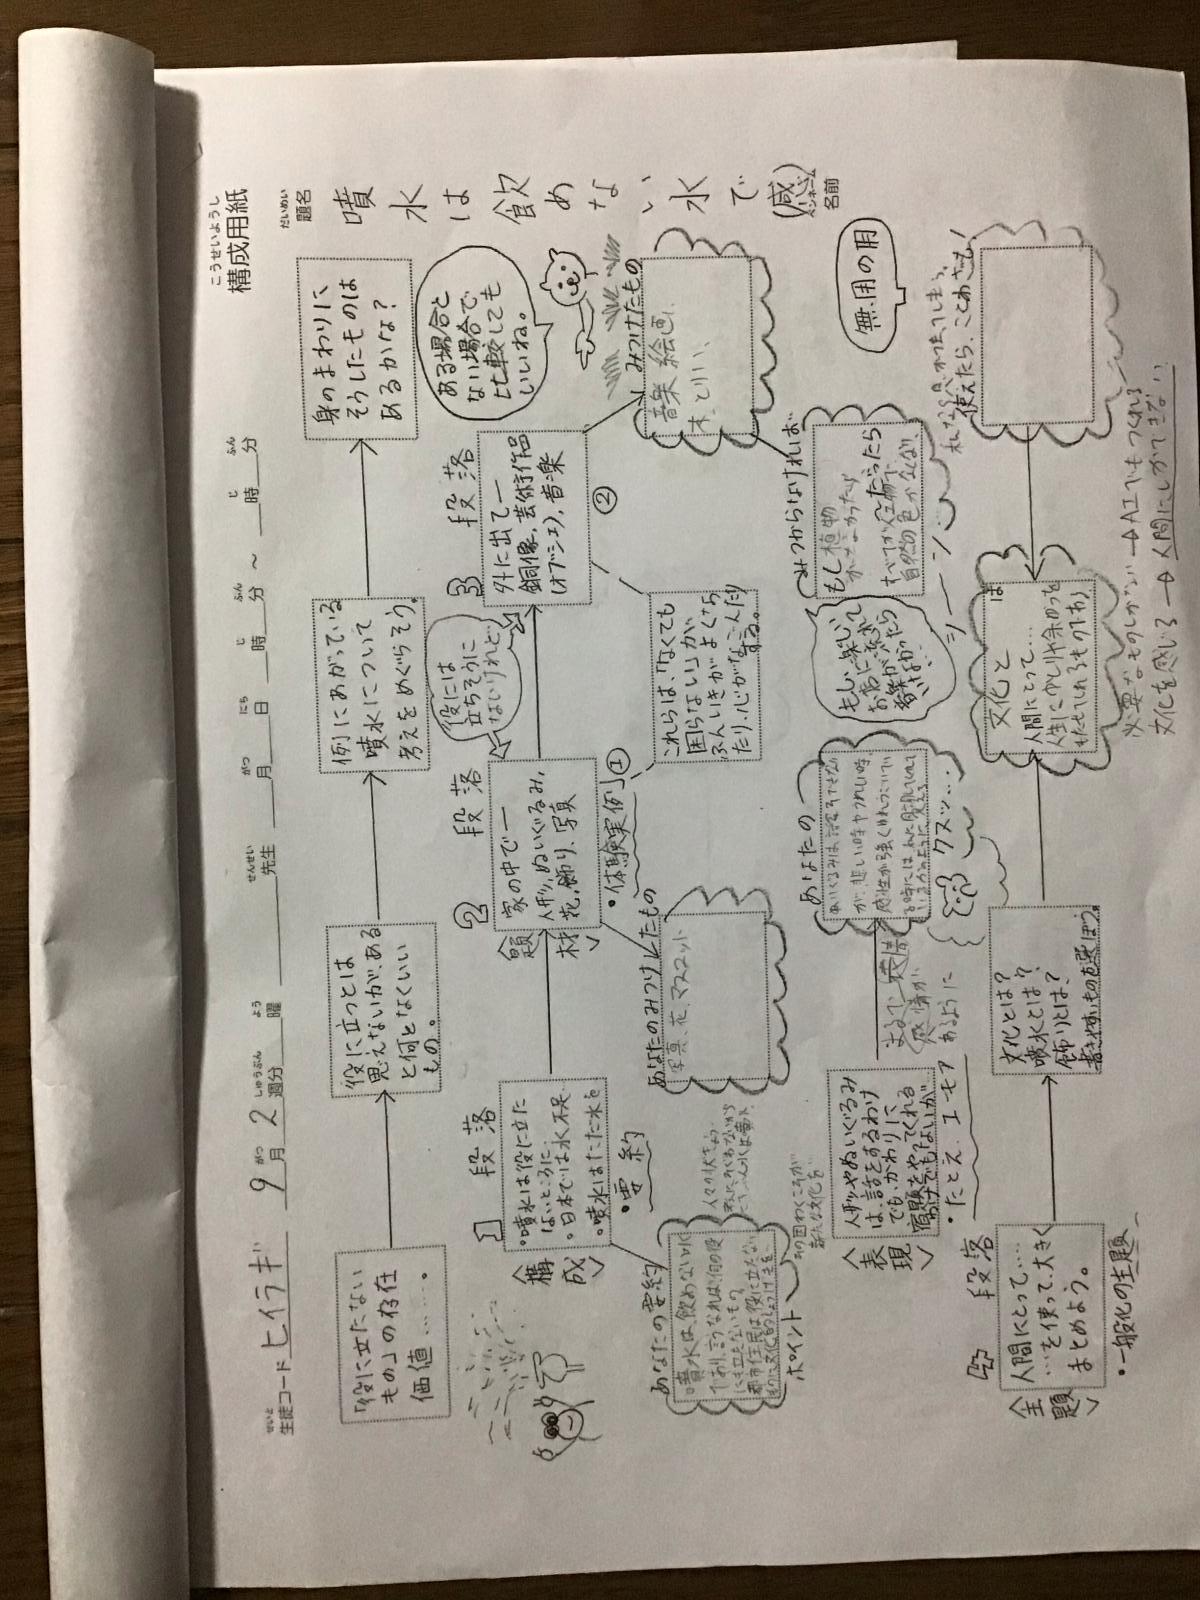 こうせいようし
構成用紙
せいと
生徒コード ヒイラギ
9月 2週分
がつ しゅうぶん
曜 先生 月 日 時 分 ～ 時 分
よう せんせい がつ にち じ ふん じ ふん
だいめい
題名
噴水は飲めない水で(感)
ペンネーム
名前
「役に立たない
もの」の存在
価値……。
役に立つとは
思えないが、ある
と何となくいい
もの。
例にあがっている
噴水について
考えをめぐらそう。
身のまわりに
そうしたものは
あるかな?
ある場合と
ない場合で
比較しても
いいね。
〈構成〉
1 段落
・噴水は役に立た
ないところに
・日本では水不足
・噴水はただ水を
・要約
〈題材〉
2 段落
家の中で―
人形、ぬいぐるみ、
花、飾り、写真
・体験実例 ①
役には
立ちそうに
ないけれど
3 段落
外に出て―
銅像、芸術作品
(オブジェ)、音楽
②
これらは、「なくても
困らない」が
ふんいきがよくなっ
たり、心がなごんだり
する。
あなたの要約
噴水は、飲めない水
であり、言うなれば、何の役
にも立たないもの。
都市住民は役に立たない
ポイント
あなたのみつけたもの
写真、花、マスコット
みつけたもの
音楽 絵画、
木、とりい、
〈表現〉
人形やぬいぐるみ
は、話をするわけ
でも、かわりに
宿題をやってくれる
わけでもないが
・たとえ、ユーモア
まるで 表情
感情が
あるように
あなたの
ぬいぐるみは話もできない
が、悲しい時やうれしい時、
クスッ…
もし、楽しい
お店に流れる
音楽がなかったら
シーーン…
みつからなければ
もし植物
がなかったら
すべてが人工物だったら
自然の色がなくなり、
無用の用
使えたら、ことわざも!
〈主題〉
4 段落
人間にとって……
…を使って、大きく
まとめよう。
・一般化の主題
文化とは?
噴水とは?
飾りとは?
書きやすいものを選ぼう。
文化とは
人間にとって…
人生にゆとりや余ゆうを
もたせてくれるものであり
必要なものしかない → AIでもつくれる
文化を感じる → 人間にしかできない